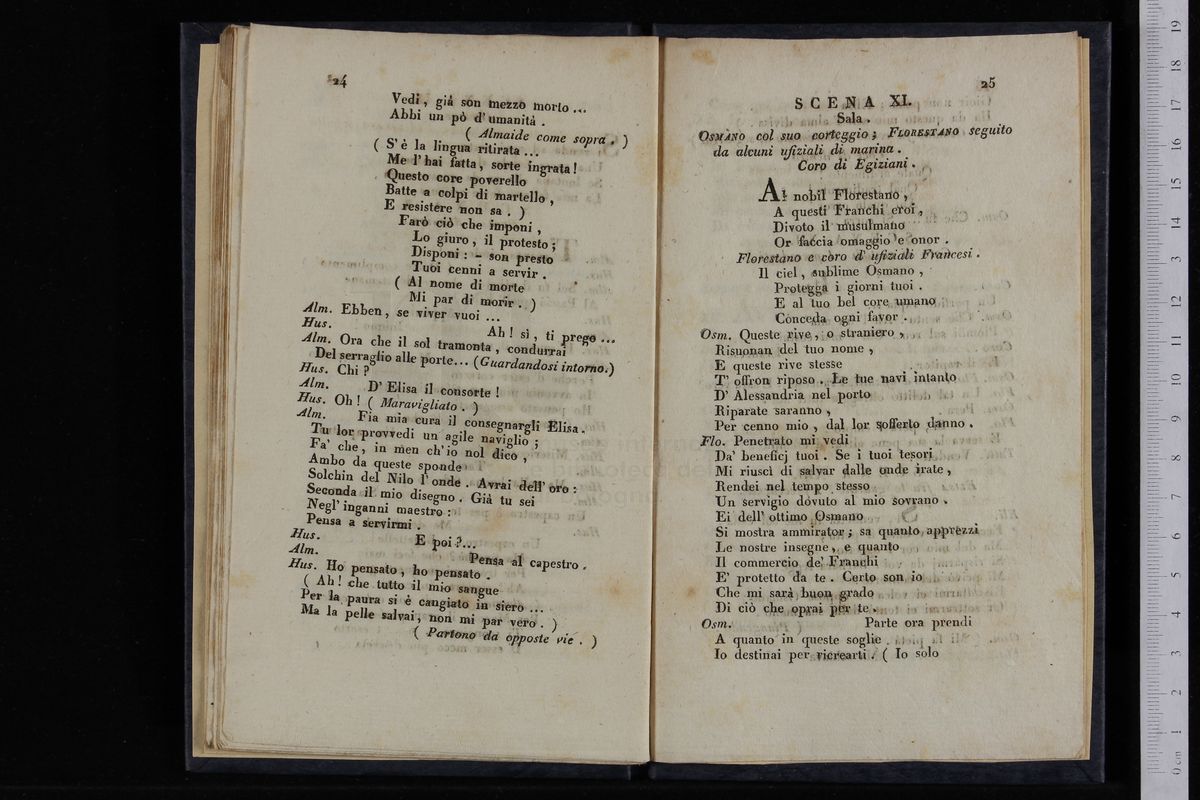 24
Vedi, già son mezzo morto ...
Abbi un pò d'umanità.
( Almaide come sopra. )
( S'è la lingua ritirata ...
Me l'hai fatta, sorte ingrata!
Questo core poverello
Batte a colpi di martello,
E resistere non sa. )
Farò ciò che imponi,
Lo giuro, il protesto;
Disponi: - son presto
Tuoi cenni a servir.
( Al nome di morte
Mi par di morir. )
Alm. Ebben, se viver vuoi ...
Hus. Ah! sì, ti prego ...
Alm. Ora che il sol tramonta, condurrai
Del serraglio alle porte... (Guardandosi intorno.)
Hus. Chi?
Alm. D'Elisa il consorte!
Hus. Oh! ( Maravigliato. )
Alm. Fia mia cura il consegnargli Elisa.
Tu lor provvedi un agile naviglio;
Fa' che, in men ch'io nol dico,
Ambo da queste sponde
Solchin del Nilo l'onde. Avrai dell'oro:
Seconda il mio disegno. Già tu sei
Negl'inganni maestro:
Pensa a servirmi.
Hus. E poi?...
Alm. Pensa al capestro.
Hus. Ho pensato, ho pensato.
( Ah! che tutto il mio sangue
Per la paura si è cangiato in siero ...
Ma la pelle salvai, non mi par vero. )
( Partono da opposte vie. )
25
SCENA XI.
Sala.
OSMANO col suo corteggio; FLORESTANO seguito
da alcuni ufiziali di marina.
Coro di Egiziani.
Al nobil Florestano,
A questi Franchi eroi,
Divoto il musulmano
Or faccia omaggio e onor.
Florestano e còro d'ufiziali Francesi.
Il ciel, sublime Osmano,
Protegga i giorni tuoi.
E al tuo bel core umano
Conceda ogni favor.
Osm. Queste rive, o straniero,
Risuonan del tuo nome,
E queste rive stesse
T'offron riposo. Le tue navi intanto
D'Alessandria nel porto
Riparate saranno,
Per cenno mio, dal lor sofferto danno.
Flo. Penetrato mi vedi
Da' beneficj tuoi. Se i tuoi tesori
Mi riuscì di salvar dalle onde irate,
Rendei nel tempo stesso
Un servigio dovuto al mio sovrano.
Ei dell'ottimo Osmano
Si mostra ammirator; sa quanto apprezzi
Le nostre insegne, e quanto
Il commercio de' Franchi
E' protetto da te. Certo son io
Che mi sarà buon grado
Di ciò che oprai per te.
Osm. Parte ora prendi
A quanto in queste soglie
Io destinai per ricrearti. ( Io solo